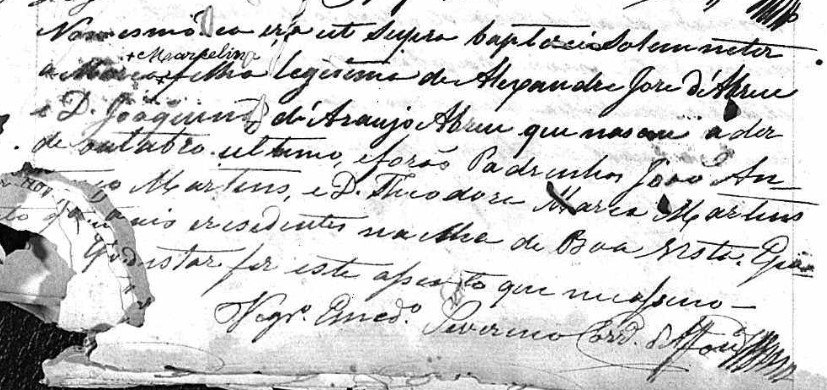 No mesmo dia era ut supra baptisei Solemneter
+ Marcelina
a Maria filha legitima de Alexandre Jose d'Abreu
e D. Joaquina de Araujo Abreu que nasceu a dez
de outubro ultimo, e forão Padrinhos João An-
Martins, e D. Theodora Maria Martins
residentes na Ilha da Boa Vista. E pa
constar fiz este assento que me assino —
Vigr.º Encd.º Severino Cord.